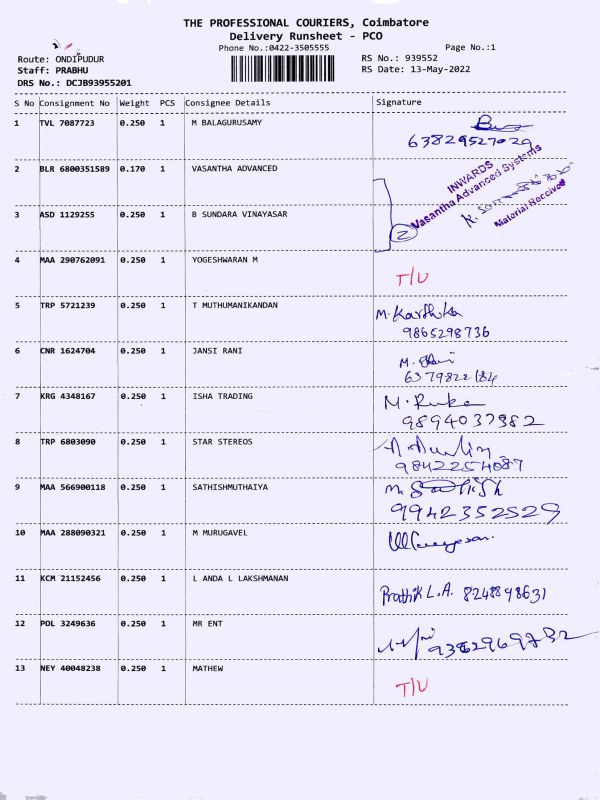 THE PROFESSIONAL COURIERS, Coimbatore
Delivery Runsheet - PCO
Phone No.:0422-3505555
Page No.:1
Route: ONDIPUDUR
RS No.: 939552
Staff: PRABHU
RS Date: 13-May-2022
DRS No.: DCJB93955201
S No Consignment No Weight PCS Consignee Details Signature
1 TVL 7087723 0.250 1 M BALAGURUSAMY
63829527029
2 BLR 6800351589 0.170 1 VASANTHA ADVANCED
INWARDS
Vasantha Advanced Systems
Material Received
3 ASD 1129255 0.250 1 B SUNDARA VINAYASAR
2
4 MAA 290762091 0.250 1 YOGESHWARAN M
T/U
5 TRP 5721239 0.250 1 T MUTHUMANIKANDAN
M. Karthika
9865298736
6 CNR 1624704 0.250 1 JANSI RANI
7 KRG 4348167 0.250 1 ISHA TRADING
9894037982
8 TRP 6803090 0.250 1 STAR STEREOS
9842254087
9 MAA 566900118 0.250 1 SATHISHMUTHAIYA
M. Sathish
9942352529
10 MAA 288090321 0.250 1 M MURUGAVEL
11 KCM 21152456 0.250 1 L ANDA L LAKSHMANAN
Prathik L.A. 8248898631
12 POL 3249636 0.250 1 MR ENT
13 NEY 40048238 0.250 1 MATHEW
T/U